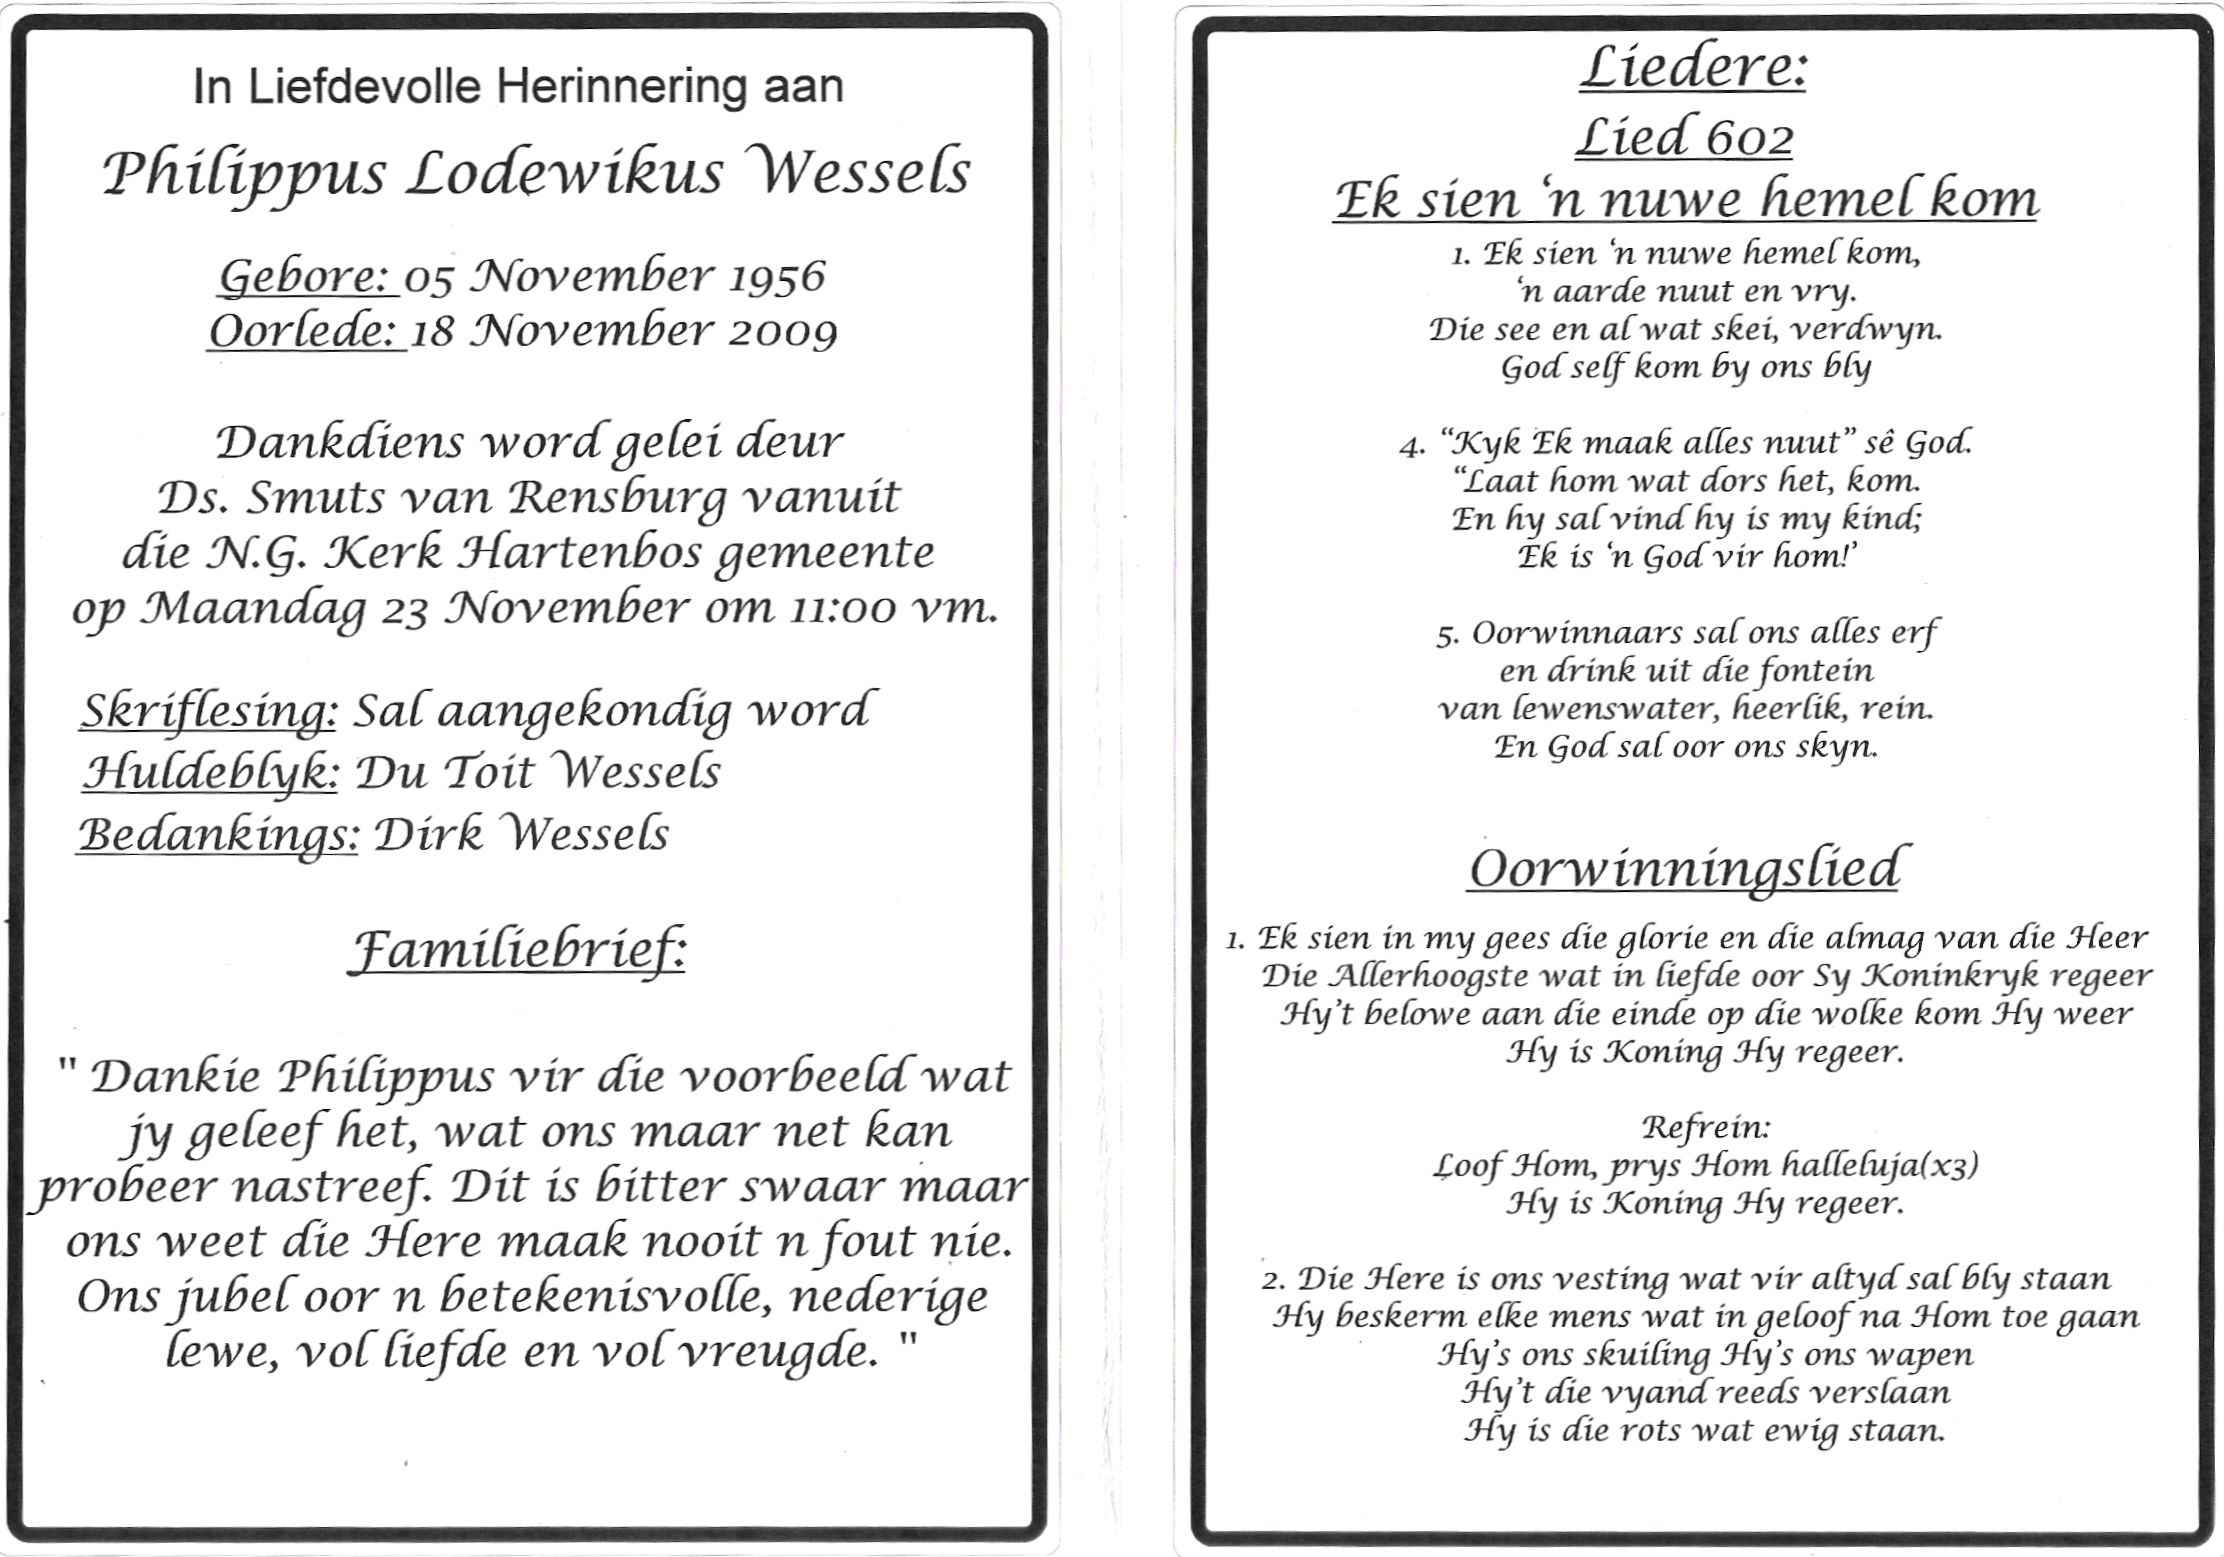 In Liefdevolle Herinnering aan
Philippus Lodewikus Wessels
Gebore: 05 November 1956
Oorlede: 18 November 2009
Dankdiens word gelei deur
Ds. Smuts van Rensburg vanuit
die N.G. Kerk Hartenbos gemeente
op Maandag 23 November om 11:00 vm.
Skriflesing: Sal aangekondig word
Huldeblyk: Du Toit Wessels
Bedankings: Dirk Wessels
Familiebrief:
" Dankie Philippus vir die voorbeeld wat
jy geleef het, wat ons maar net kan
probeer nastreef. Dit is bitter swaar maar
ons weet die Here maak nooit n fout nie.
Ons jubel oor n betekenisvolle, nederige
lewe, vol liefde en vol vreugde. "
Liedere:
Lied 602
Ek sien ‘n nuwe hemel kom
1. Ek sien ‘n nuwe hemel kom,
‘n aarde nuut en vry.
Die see en al wat skei, verdwyn.
God self kom by ons bly
4. “Kyk Ek maak alles nuut” sê God.
“Laat hom wat dors het, kom.
En hy sal vind hy is my kind;
Ek is ‘n God vir hom!’
5. Oorwinnaars sal ons alles erf
en drink uit die fontein
van lewenswater, heerlik, rein.
En God sal oor ons skyn.
Oorwinningslied
1. Ek sien in my gees die glorie en die almag van die Heer
Die Allerhoogste wat in liefde oor Sy Koninkryk regeer
Hy’t belowe aan die einde op die wolke kom Hy weer
Hy is Koning Hy regeer.
Refrein:
Loof Hom, prys Hom halleluja(x3)
Hy is Koning Hy regeer.
2. Die Here is ons vesting wat vir altyd sal bly staan
Hy beskerm elke mens wat in geloof na Hom toe gaan
Hy’s ons skuiling Hy’s ons wapen
Hy’t die vyand reeds verslaan
Hy is die rots wat ewig staan.